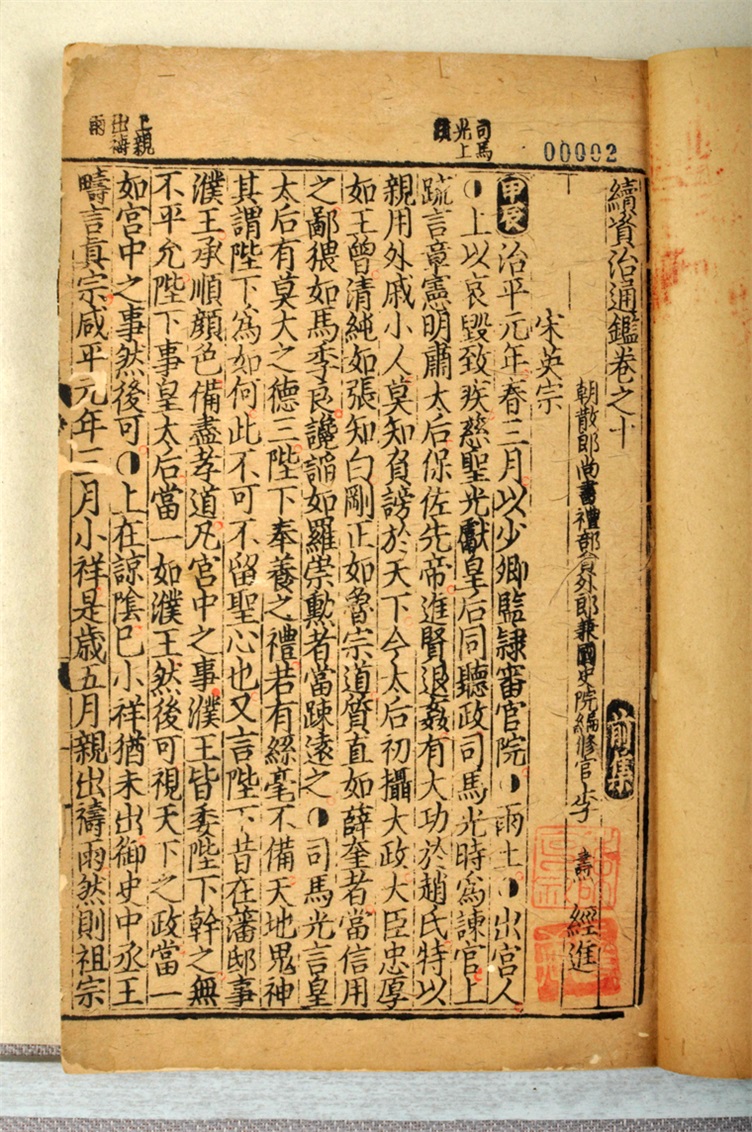 00002
司馬
光上
疏
上親
出禱
雨
續資治通鑑卷之十
前集
朝散郎尚書禮部員外郎兼國史院編修官李燾經進
宋英宗
甲辰治平元年春三月以少卿監隷審官院○雨土○出宮人
○上以哀毀致疾慈聖光獻皇后同聽政司馬光時爲諫官上
疏言章憲明肅太后保佐先帝進賢退姦有大功於趙氏特以
親用外戚小人莫知負謗於天下今太后初攝大政大臣忠厚
如王曾清純如張知白剛正如魯宗道質直如薛奎者當信用
之鄙猥如馬季良讒謟如羅崇勳者當踈遠之○司馬光言皇
太后有莫大之德三陛下奉養之禮若有絲毫不備天地鬼神
其謂陛下爲如何此不可不留聖心也又言陛下昔在藩邸事
濮王承順顔色備盡孝道凡宮中之事濮王皆委陛下幹之無
不平允陛下事皇太后當一如濮王然後可視天下之政當一
如宮中之事然後可○上在諒陰巳小祥猶未出御史中丞王
疇言真宗咸平元年三月小祥是歲五月親出禱雨然則祖宗